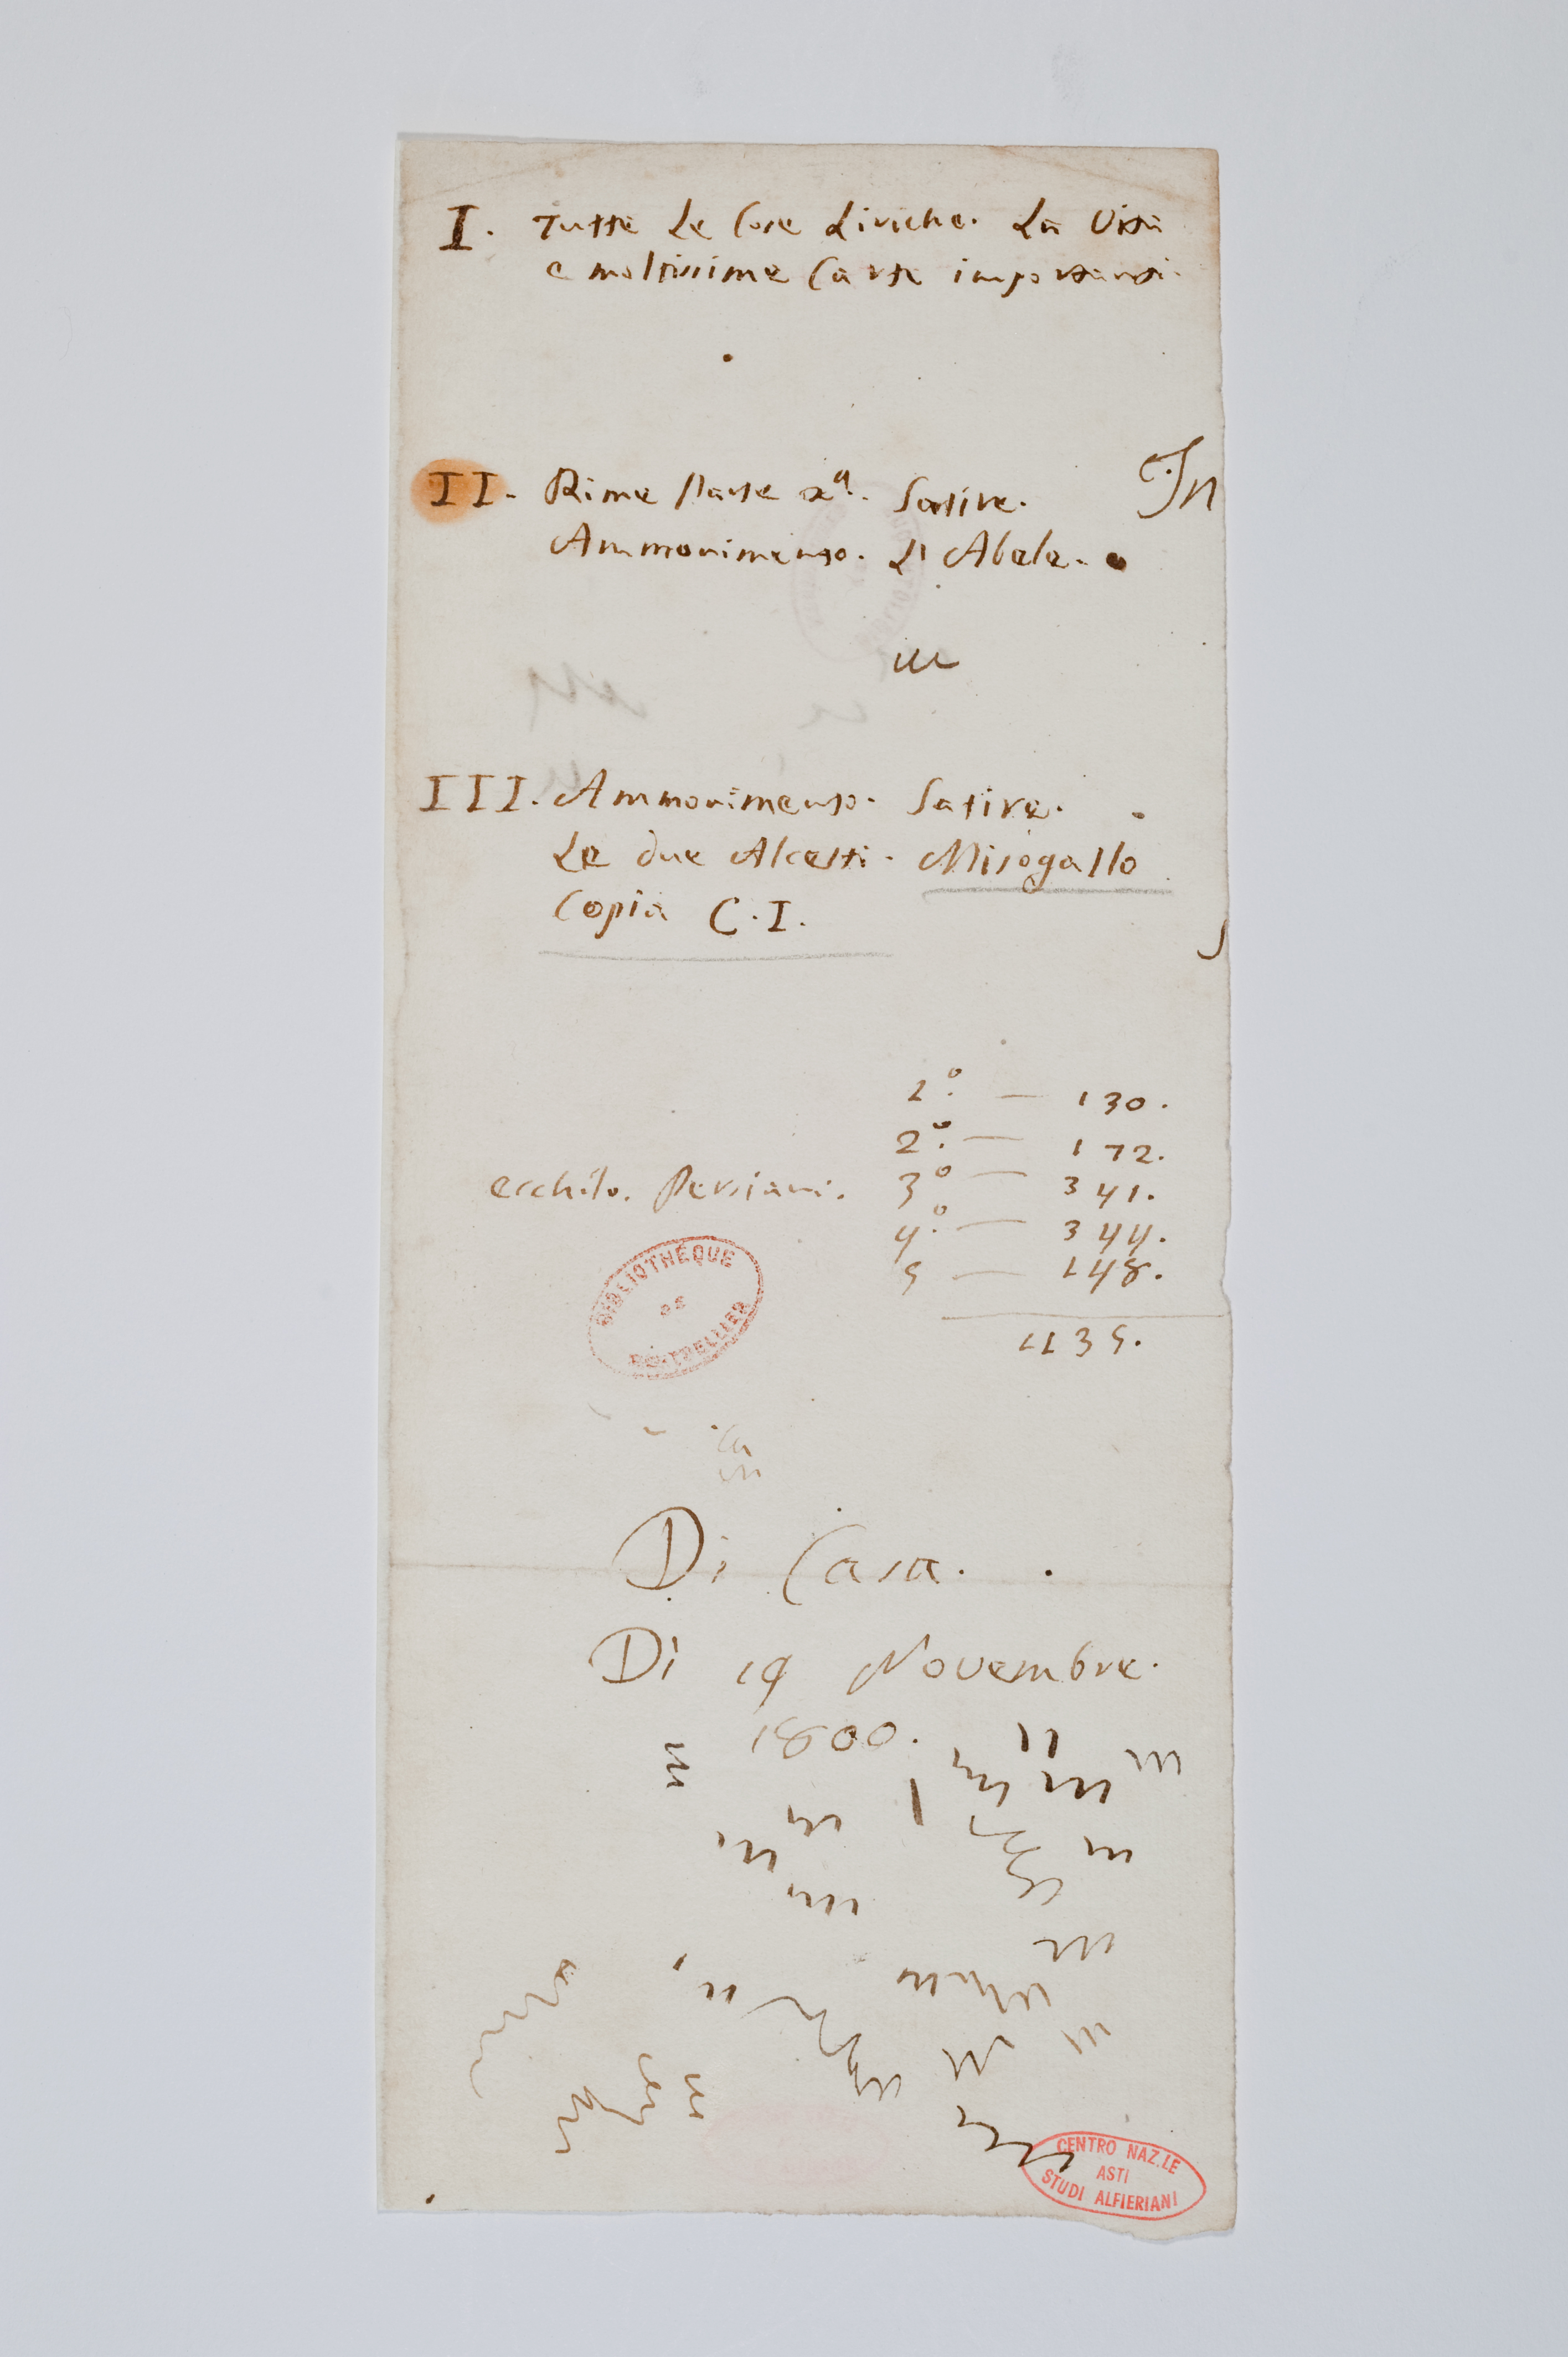 I. Tutte Le Cose Liriche. La Vita
e moltissime Carte importanti.
II. Rime Parte 2ª. Satire. In
Ammonimento. L'Abele.
III. Ammonimento. Satire.
Le due Alcesti. Misogallo
Copia C.I.
1º. — 130.
2º. — 172.
eschilo. Persiani. 3º — 341.
4º. — 344.
5 — 148.
1135.
BIBLIOTHÈQUE
DE
MONTPELLIER
Di Casa.
Dì 19 Novembre.
1800.
CENTRO NAZ.LE
ASTI
STUDI ALFIERIANI